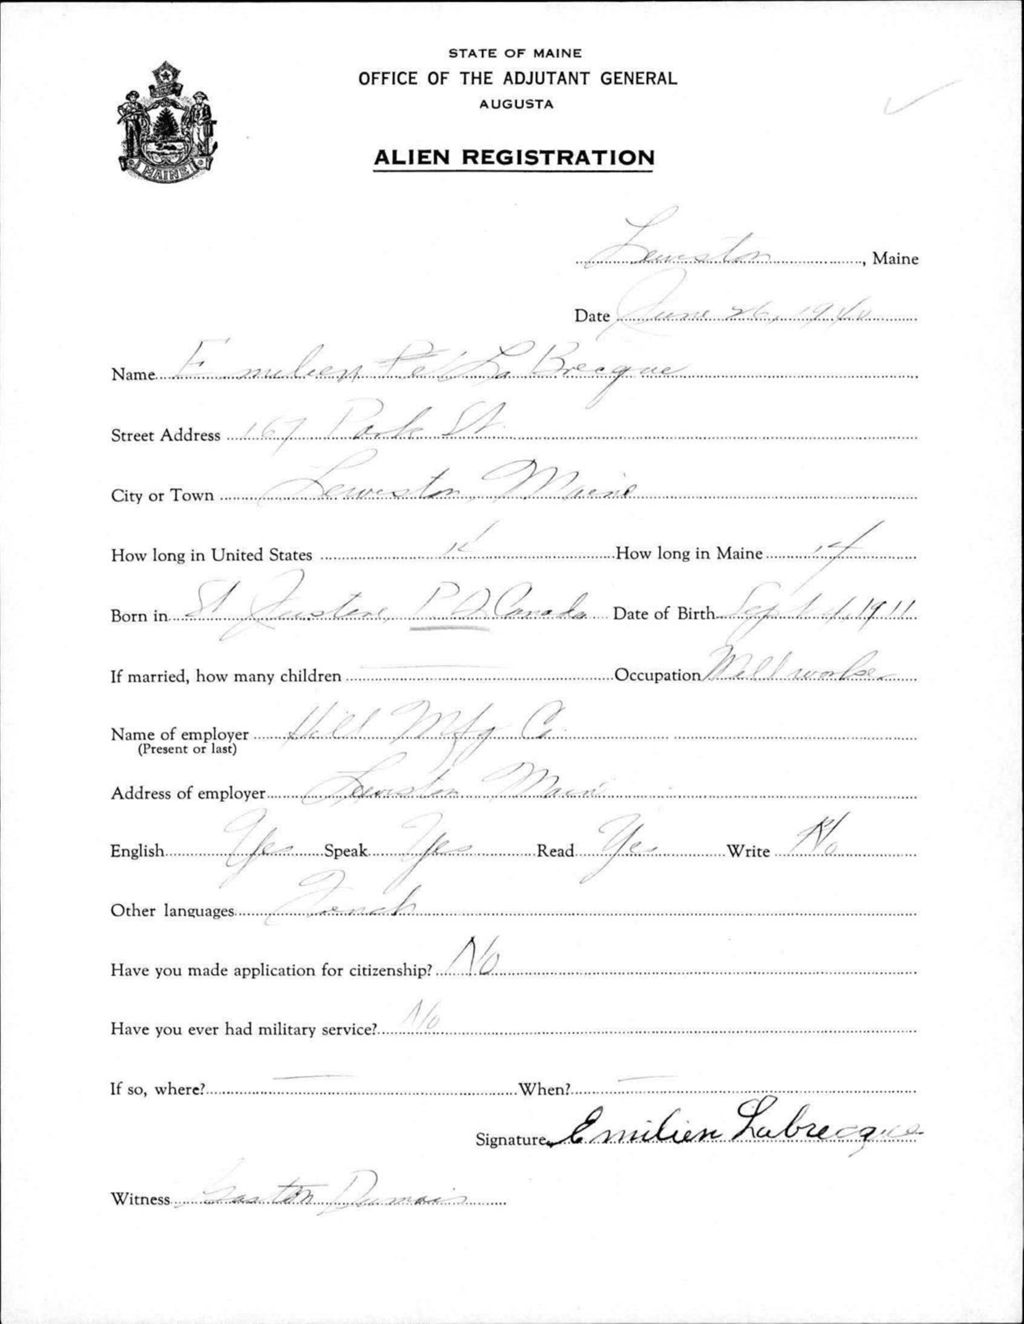 STATE OF MAINE
OFFICE OF THE ADJUTANT GENERAL
AUGUSTA
ALIEN REGISTRATION
MAINE
Lewiston, Maine
Date June 26, 1940
Name Emilien LaBrecque
Street Address 167 Park St
City or Town Lewiston, Maine
How long in United States 14 How long in Maine 14
Born in St Justine, P Q Canada Date of Birth Sept 4, 1911
If married, how many children — Occupation Mill worker
Name of employer Hill Mfg Co.
(Present or last)
Address of employer Lewiston Maine
English Yes Speak Yes Read Yes Write No
Other languages French
Have you made application for citizenship? No
Have you ever had military service? No
If so, where? — When? —
Signature Emilien Labrecque
Witness Gaston Dumais